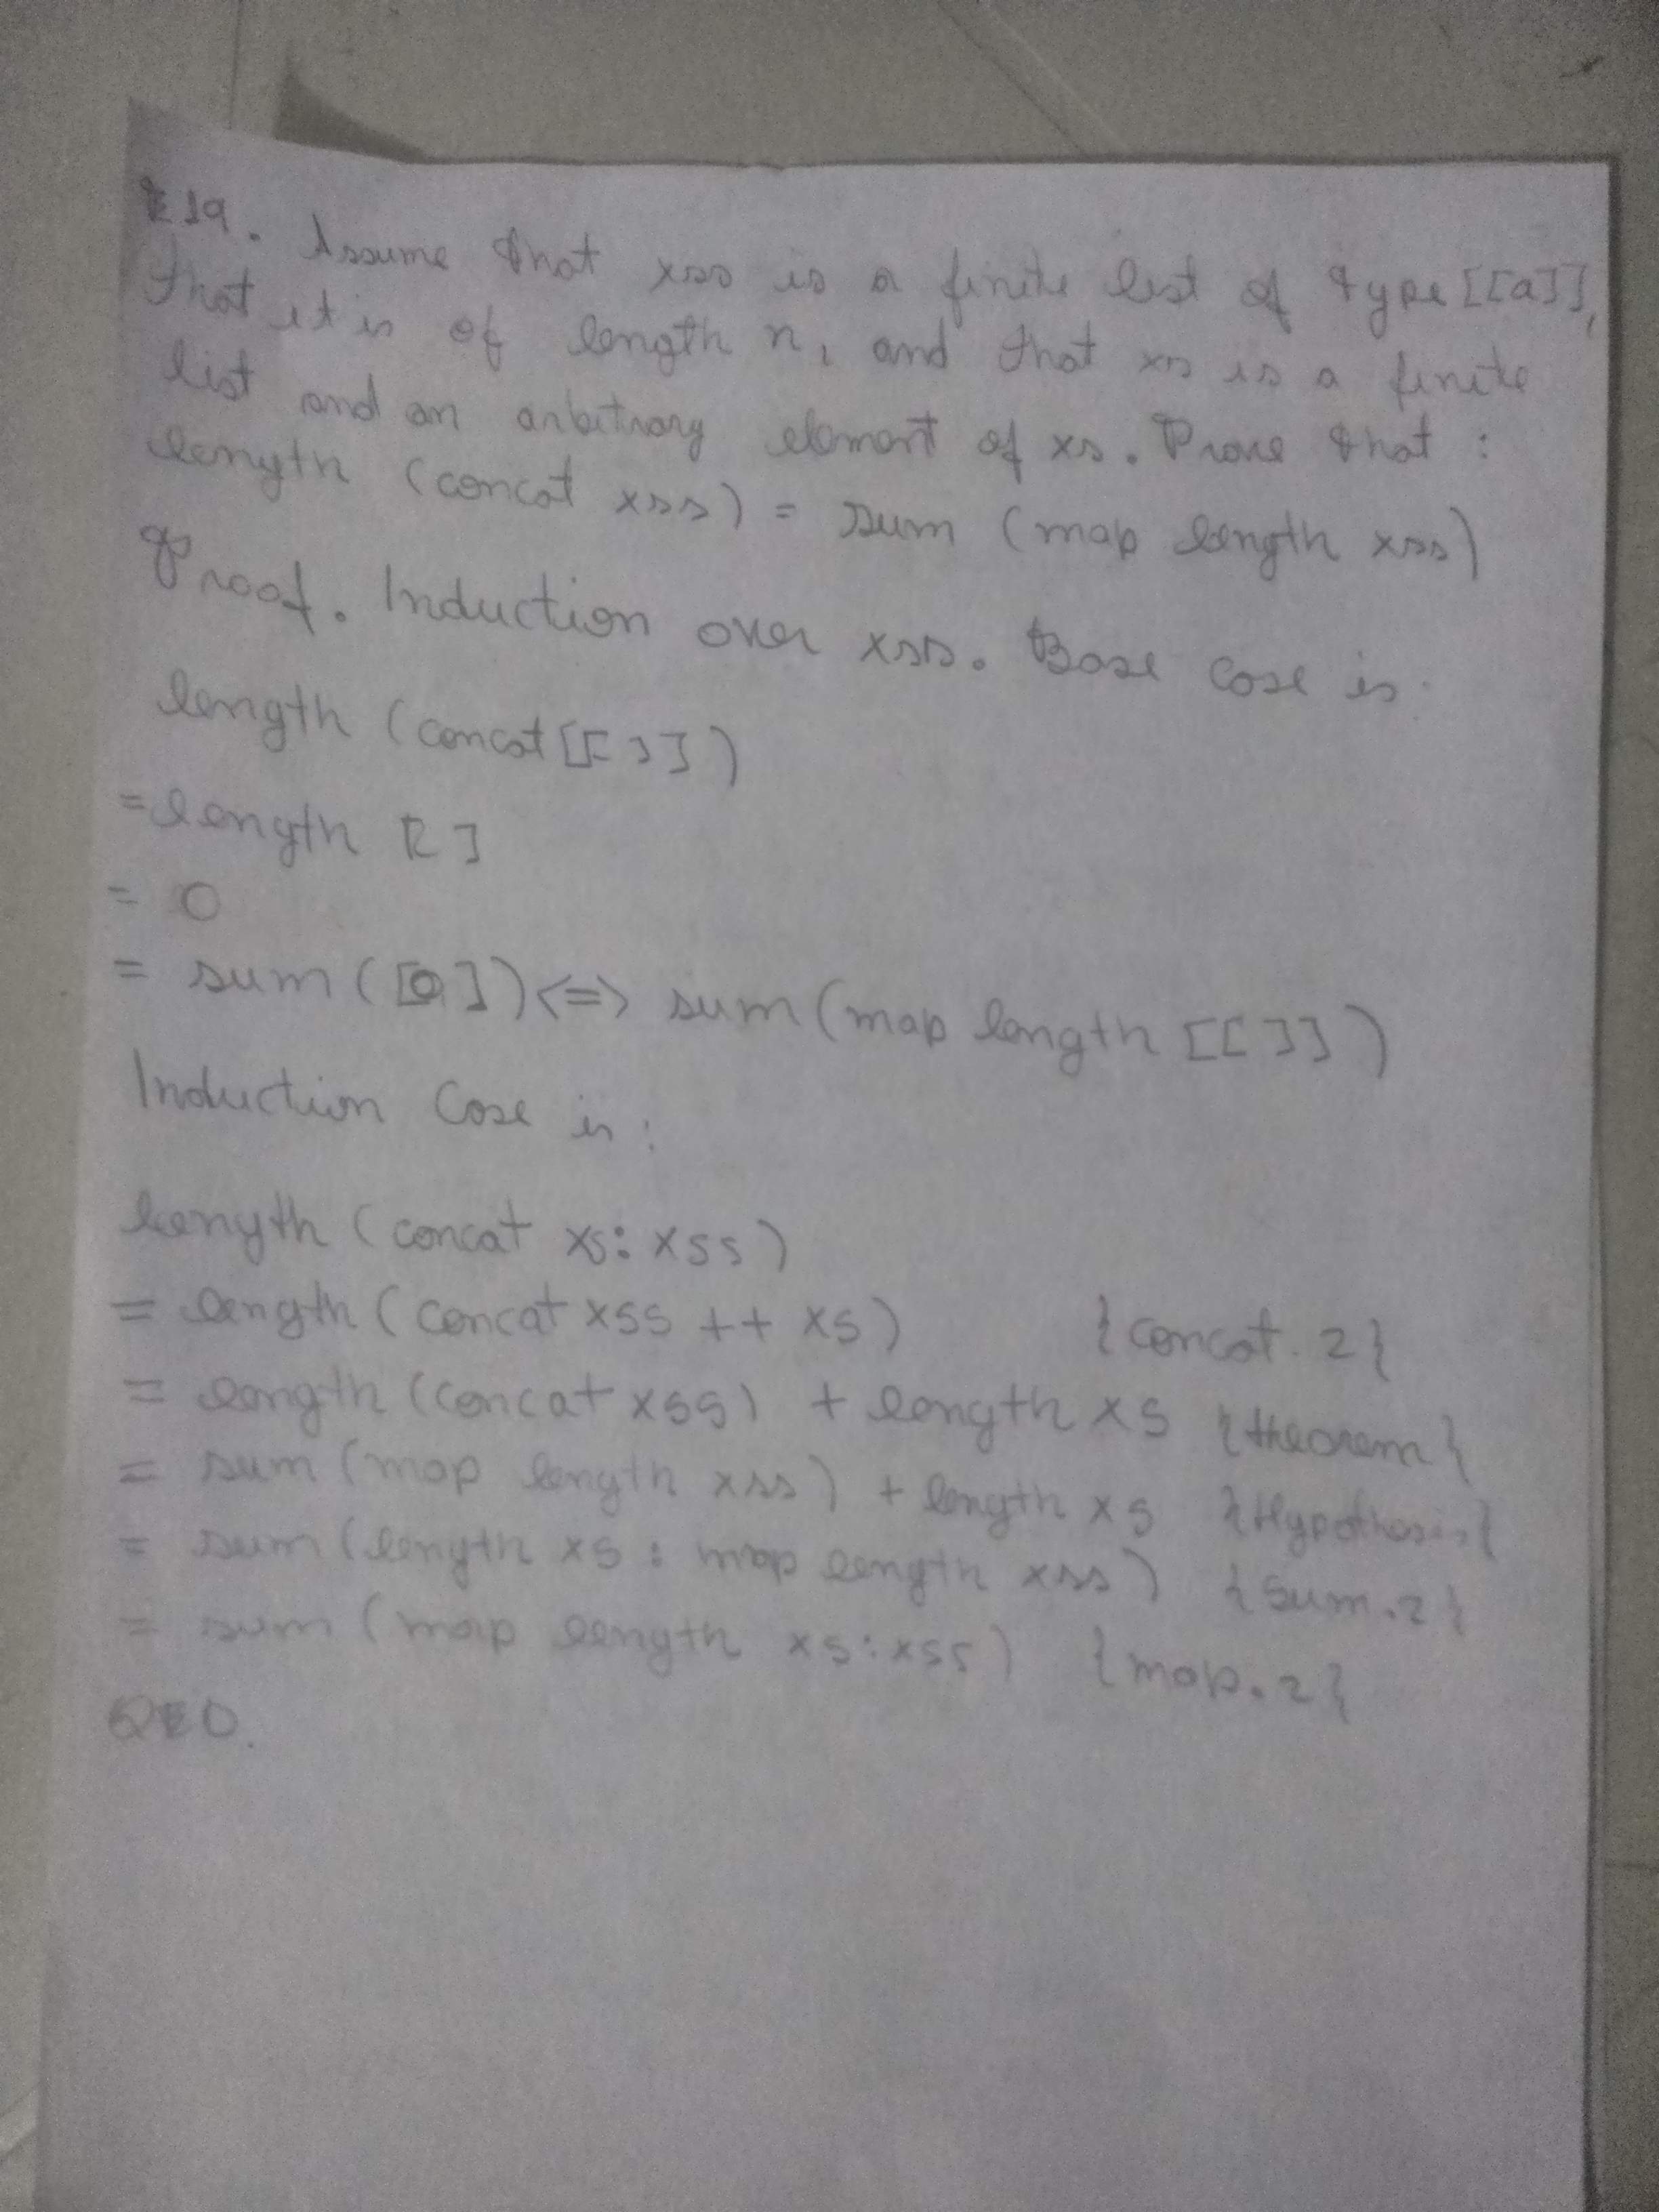 E19. Assume that xss is a finite list of type [[a]],
that it is of length n, and that xs is a finite
list and an arbitrary element of xs. Prove that :
length (concat xss) = sum (map length xss)
Proof. Induction over xss. Base case is:
length (concat [[]])
= length []
= 0
= sum ([0]) <=> sum (map length [[]])
Induction Case is:
length (concat xs: xss)
= length (concat xss ++ xs) {concat.2}
= length (concat xss) + length xs {theorem}
= sum (map length xss) + length xs {Hypothesis}
= sum (length xs : map length xss) {sum.2}
= sum (map length xs:xss) {map.2}
QED.